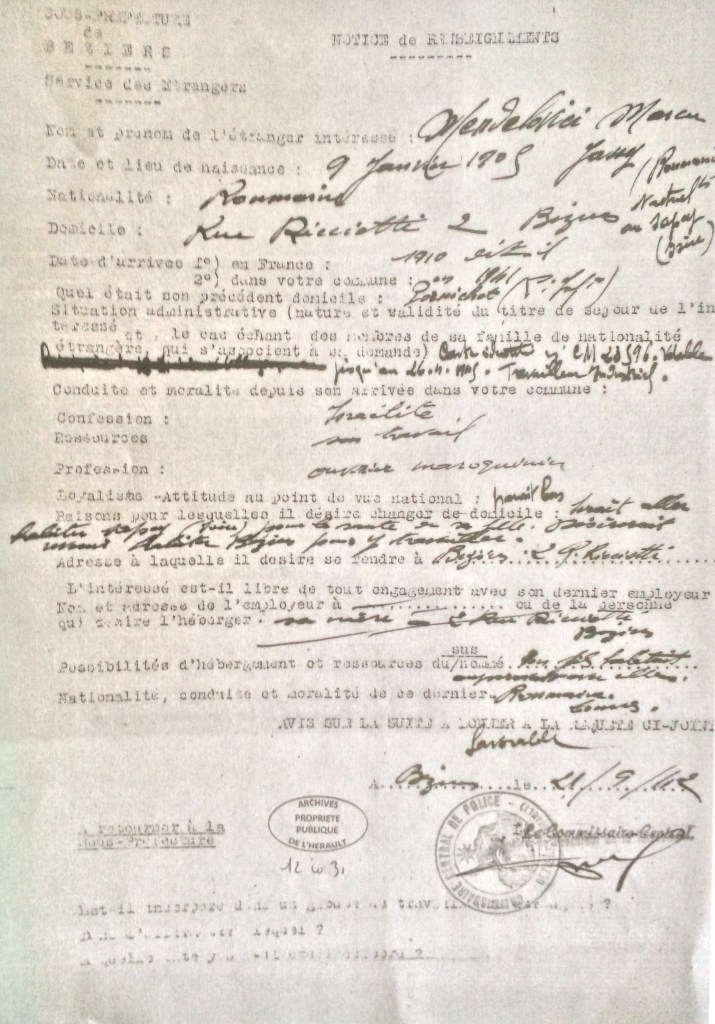 SOUS-PREFECTURE
de
BEZIERS
Service des Etrangers
NOTICE de RENSEIGNEMENTS
Nom et prenom de l'étranger intéressé : Mendelovici Marcu
Date et lieu de naissance : 9 Janvier 1905 Jassy (Roumanie)
Nationalité : Roumaine
actuel
au Sapey
(Isère)
Domicile : Rue Ricciotti 2 Béziers
Date d'arrivée 1°) en France : 1910
2°) dans votre commune : 1941
Quel était son précédent domicile : Pornichet
Situation administrative (nature et validité du titre de sejour de l'in
téressé et, le cas échéant des membres de sa famille de nationalité
étrangère qui s'associent à sa demande) Carte identité n° CM 28596. Valable
jusqu'au 26.11.1945. Travailleur Industriel.
Conduite et moralité depuis son arrivée dans votre commune :
Confession : Israélite
Ressources son travail
Profession : ouvrier maroquinier
Loyalisme -Attitude au point de vue national : parait bon
Raisons pour lesquelles il désire changer de domicile : Serait aller
habiter Sapey (Isère) pour la santé de sa fille. Désirerait
habiter Béziers pour y travailler.
Adresse à laquelle il desire se rendre à Béziers 2 R. Ricciotti
L'intéressé est-il libre de tout engagement avec son dernier employeur
Nom et adresse de l'employeur à .............. ou de la personne
qui désire l'héberger. sa mère - 2 Rue Ricciotti
Béziers
Possibilités d'hébergement et ressources du/sus nommé
Nationalité, conduite et moralité de ce dernier. Roumaine.
bonnes.
AVIS SUR LA SUITE A DONNER A LA REQUETE CI-JOINTE
favorable
A Béziers le 21/9/42
Le Commissaire Central
A retourner à la
Sous-Préfecture
ARCHIVES
PROPRIETE
PUBLIQUE
DE L'HERAULT
COMMISSAIRE CENTRAL DE POLICE
Est-il incorporé dans un groupe de travailleurs ?